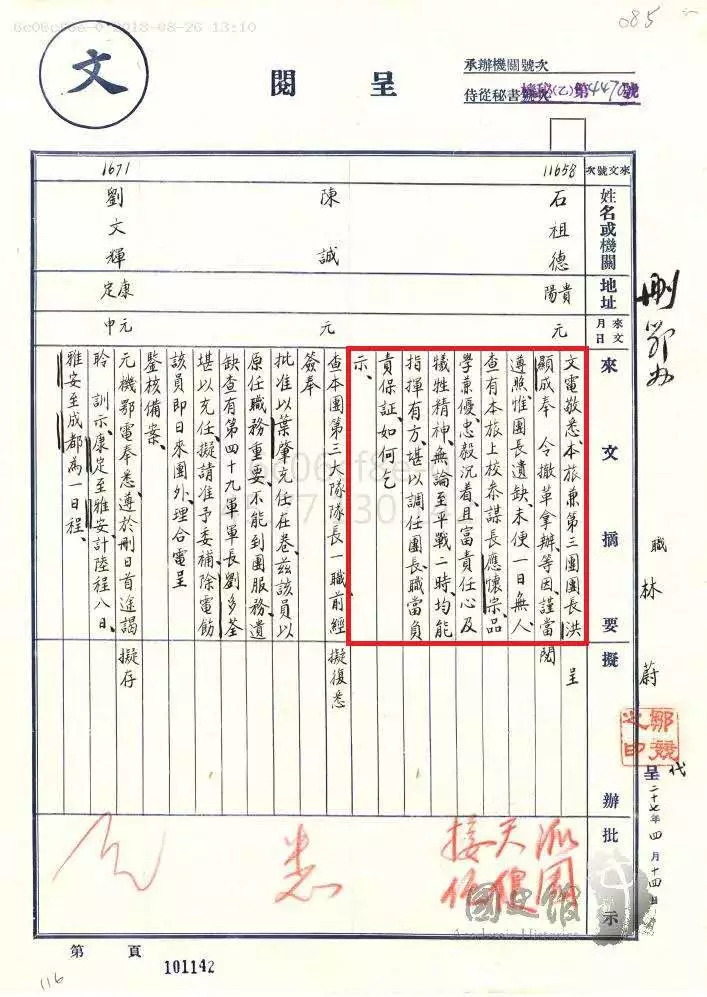 6c06cf8e-0 2018-08-26 13:10
085
文
呈閱
承辦機關號次
侍從秘書號次 機秘(乙)第447 號
來文號次
11658
1671
姓名或機關
石祖德
陳誠
劉文輝
地址
貴陽
康定
來文月日
元
元
元申
來文摘要
文電敬悉、本旅兼第三團團長洪
顯成奉 令撤革拿辦、等因、謹當
遵照、惟團長遺缺、未便一日無人、
查有本旅上校參謀長應懷宗、品
學兼優、忠毅沉着、且富責任心及
犧牲精神、無論至平戰二時、均能
指揮有方、堪以調任團長、職當負
責保証、如何、乞
示、
查本團第三大隊隊長一職前經
簽奉
批准以葉肇充任在卷、茲該員以
原任職務重要、不能到團服務、遺
缺查有第四十九軍軍長劉多荃
堪以充任、擬請准予委補、除電飭
該員即日來團外、理合電呈
鑒核備案、
元機鄂電奉悉、遵於刪日首途謁
聆 訓示、康定至雅安計陸程八日、
雅安至成都為一日程、
擬辦
呈
閱
擬復悉
擬存
批示
派
團
天健
接任
悉
職 林蔚
鄒競之印
代
呈 二十七年四月十四日
刪
國史館
Academia Historica
第 頁
101142
116